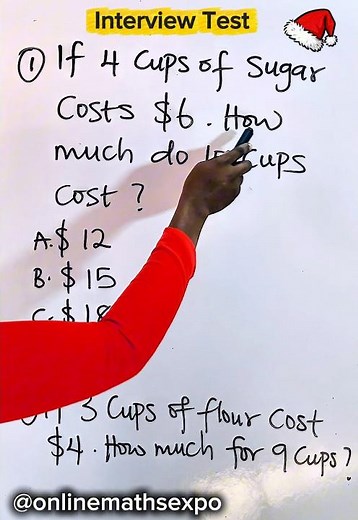 Interview Test
① If 4 Cups of Sugar
Costs $6. How
much do Cups
Cost?
A. $ 12
B. $ 15
C. $ 18
3 Cups of flour Cost
$4. How much for 9 Cups?
@onlinemathsexpo